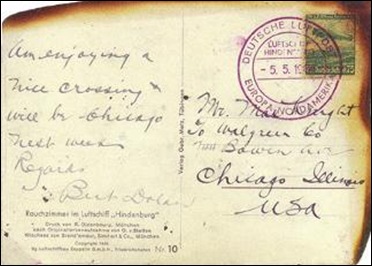 Am enjoying a
nice crossing
will be Chicago
next week
Regards
Burt Dolan
Rauchzimmer im Luftschiff „Hindenburg“
Druck von R. Oldenbourg, München
nach Originalfarbenaufnahme von O. v.
München
Copyright
by Luftschiffbau Zeppelin G.M.B.H., Friedrichshafen
Nr. 10
Verlag Gebr. Metz, Tübingen
DEUTSCHE LUFTPOST
LUFTSCHIFF
HINDENBURG
- 5. 5. 19
EUROPA-NORDAMERIKA
Mr.
To Walgreen Co
Bowen Ave
Chicago Illinois
USA